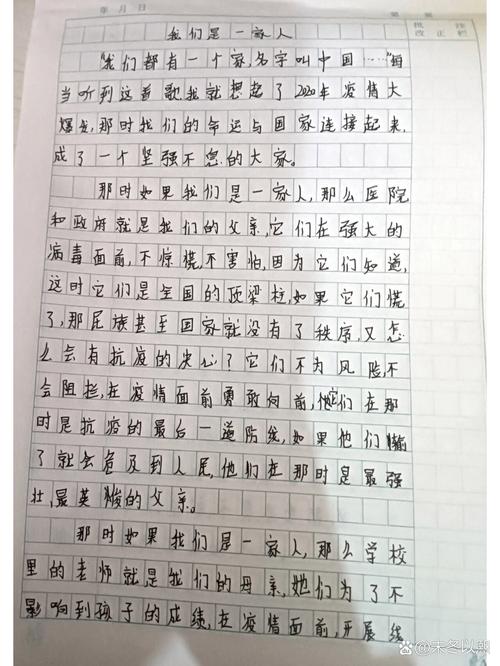 年 月 日
批注
改正栏
我们是一家人
"我们都有一个家,名字叫中国……"每
当听到这首歌我就想起了2020年疫情大
爆发,那时我们的命运与国家连接起来,
成了一个坚强不息的大家。
那时如果我们是一家人,那么医院
和政府就是我们的父亲,它们在强大的
病毒面前,不惊慌,不害怕,因为它们知道,
这时它们是全国的顶梁柱,如果它们慌
了,那民族甚至国家就没有了秩序,又怎
么会有抗疫的决心?它们不为风险,不
会阻拦,在疫情面前勇敢向前,他们在那
时是抗疫的最后一道防线,如果他们懒
了就会危及到人民,他们在那时是最强
壮,最英俊的父亲。
那时如果我们是一家人,那么学校
里的老师就是我们的母亲,她们为了不
影响到孩子的成绩,在疫情面前,开展线